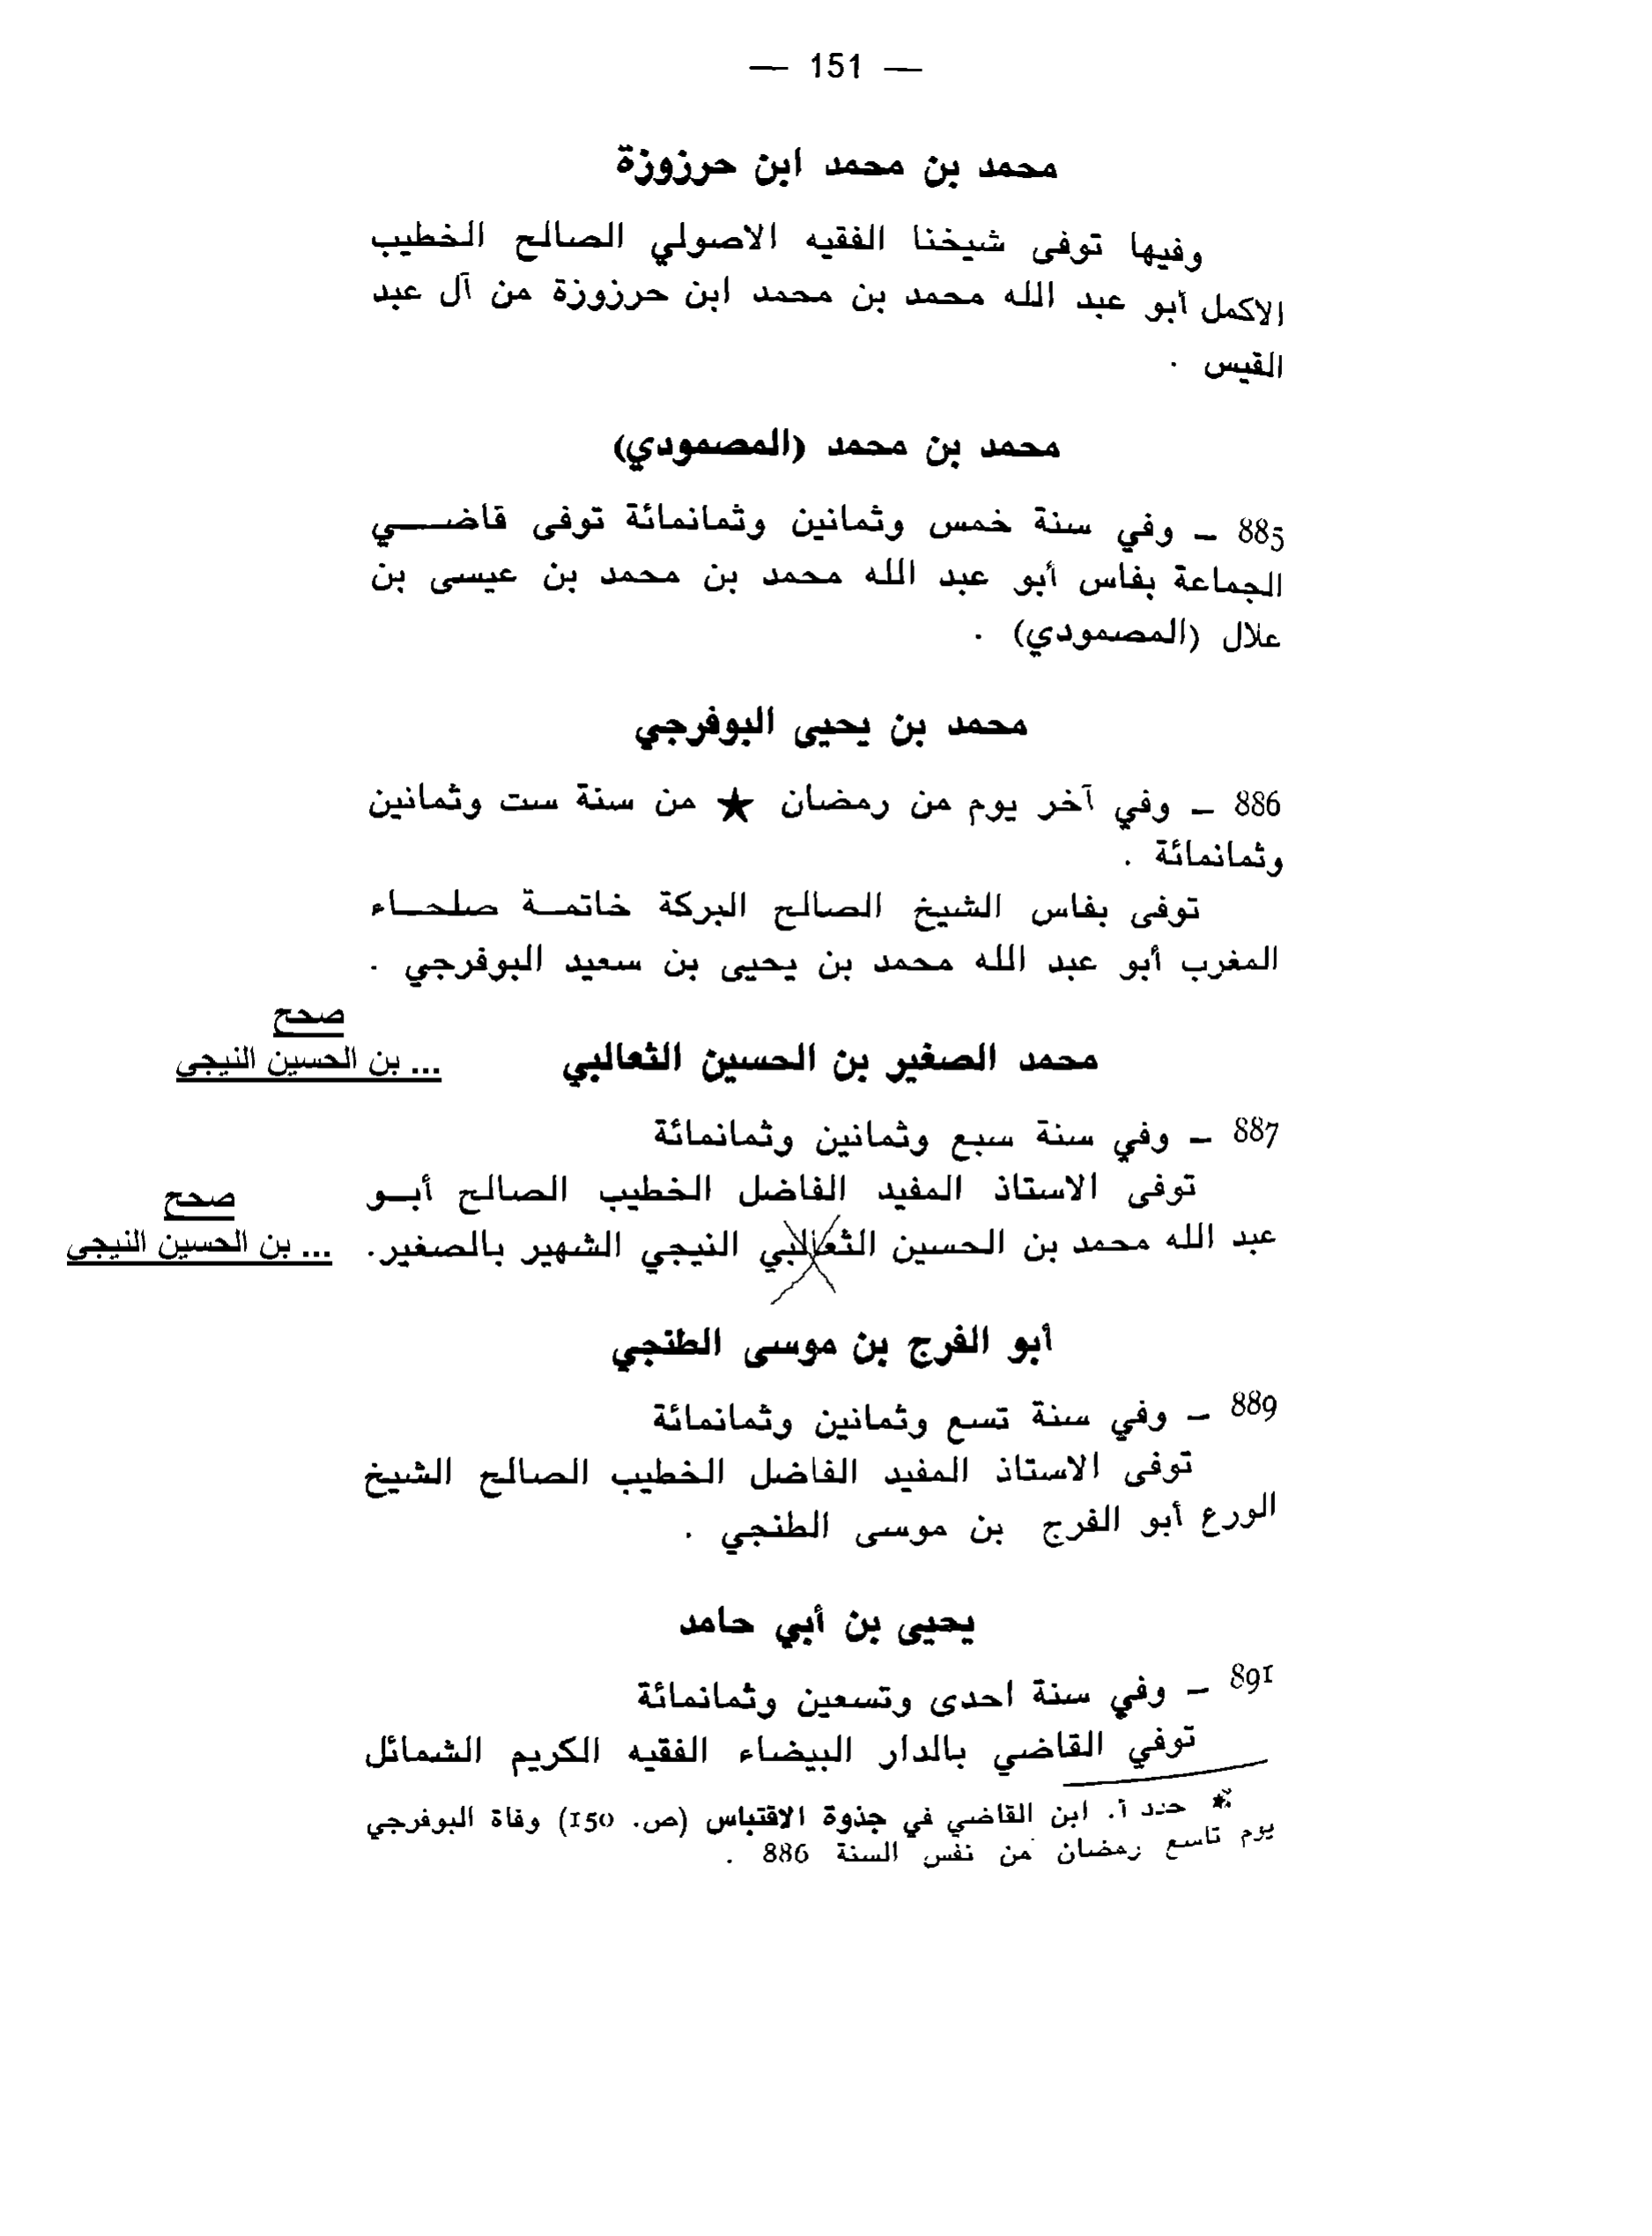 — 151 —
محمد بن محمد ابن حرزوزة
وفيها توفى شيخنا الفقيه الاصولي الصالح الخطيب
الاكمل أبو عبد الله محمد بن محمد ابن حرزوزة من آل عبد
القيس .
محمد بن محمد (المصمودي)
885 – وفي سنة خمس وثمانين وثمانمائة توفى قاضي
الجماعة بفاس أبو عبد الله محمد بن محمد بن عيسى بن
علال (المصمودي) .
محمد بن يحيى البوفرجي
886 – وفي آخر يوم من رمضان ★ من سنة ست وثمانين
وثمانمائة .
توفى بفاس الشيخ الصالح البركة خاتمة صلحاء
المغرب أبو عبد الله محمد بن يحيى بن سعيد البوفرجي .
صحح
محمد الصغير بن الحسين الثعالبي
... بن الحسين النيجي
887 – وفي سنة سبع وثمانين وثمانمائة
توفى الاستاذ المفيد الفاضل الخطيب الصالح أبو
صحح
عبد الله محمد بن الحسين الثعالبي النيجي الشهير بالصغير.
... بن الحسين النيجي
أبو الفرج بن موسى الطنجي
889 – وفي سنة تسع وثمانين وثمانمائة
توفى الاستاذ المفيد الفاضل الخطيب الصالح الشيخ
الورع أبو الفرج بن موسى الطنجي .
يحيى بن أبي حامد
891 – وفي سنة احدى وتسعين وثمانمائة
توفي القاضي بالدار البيضاء الفقيه الكريم الشمائل
★ حدد أ. ابن القاضي في جذوة الاقتباس (ص. 150) وفاة البوفرجي
يوم تاسع رمضان من نفس السنة 886 .